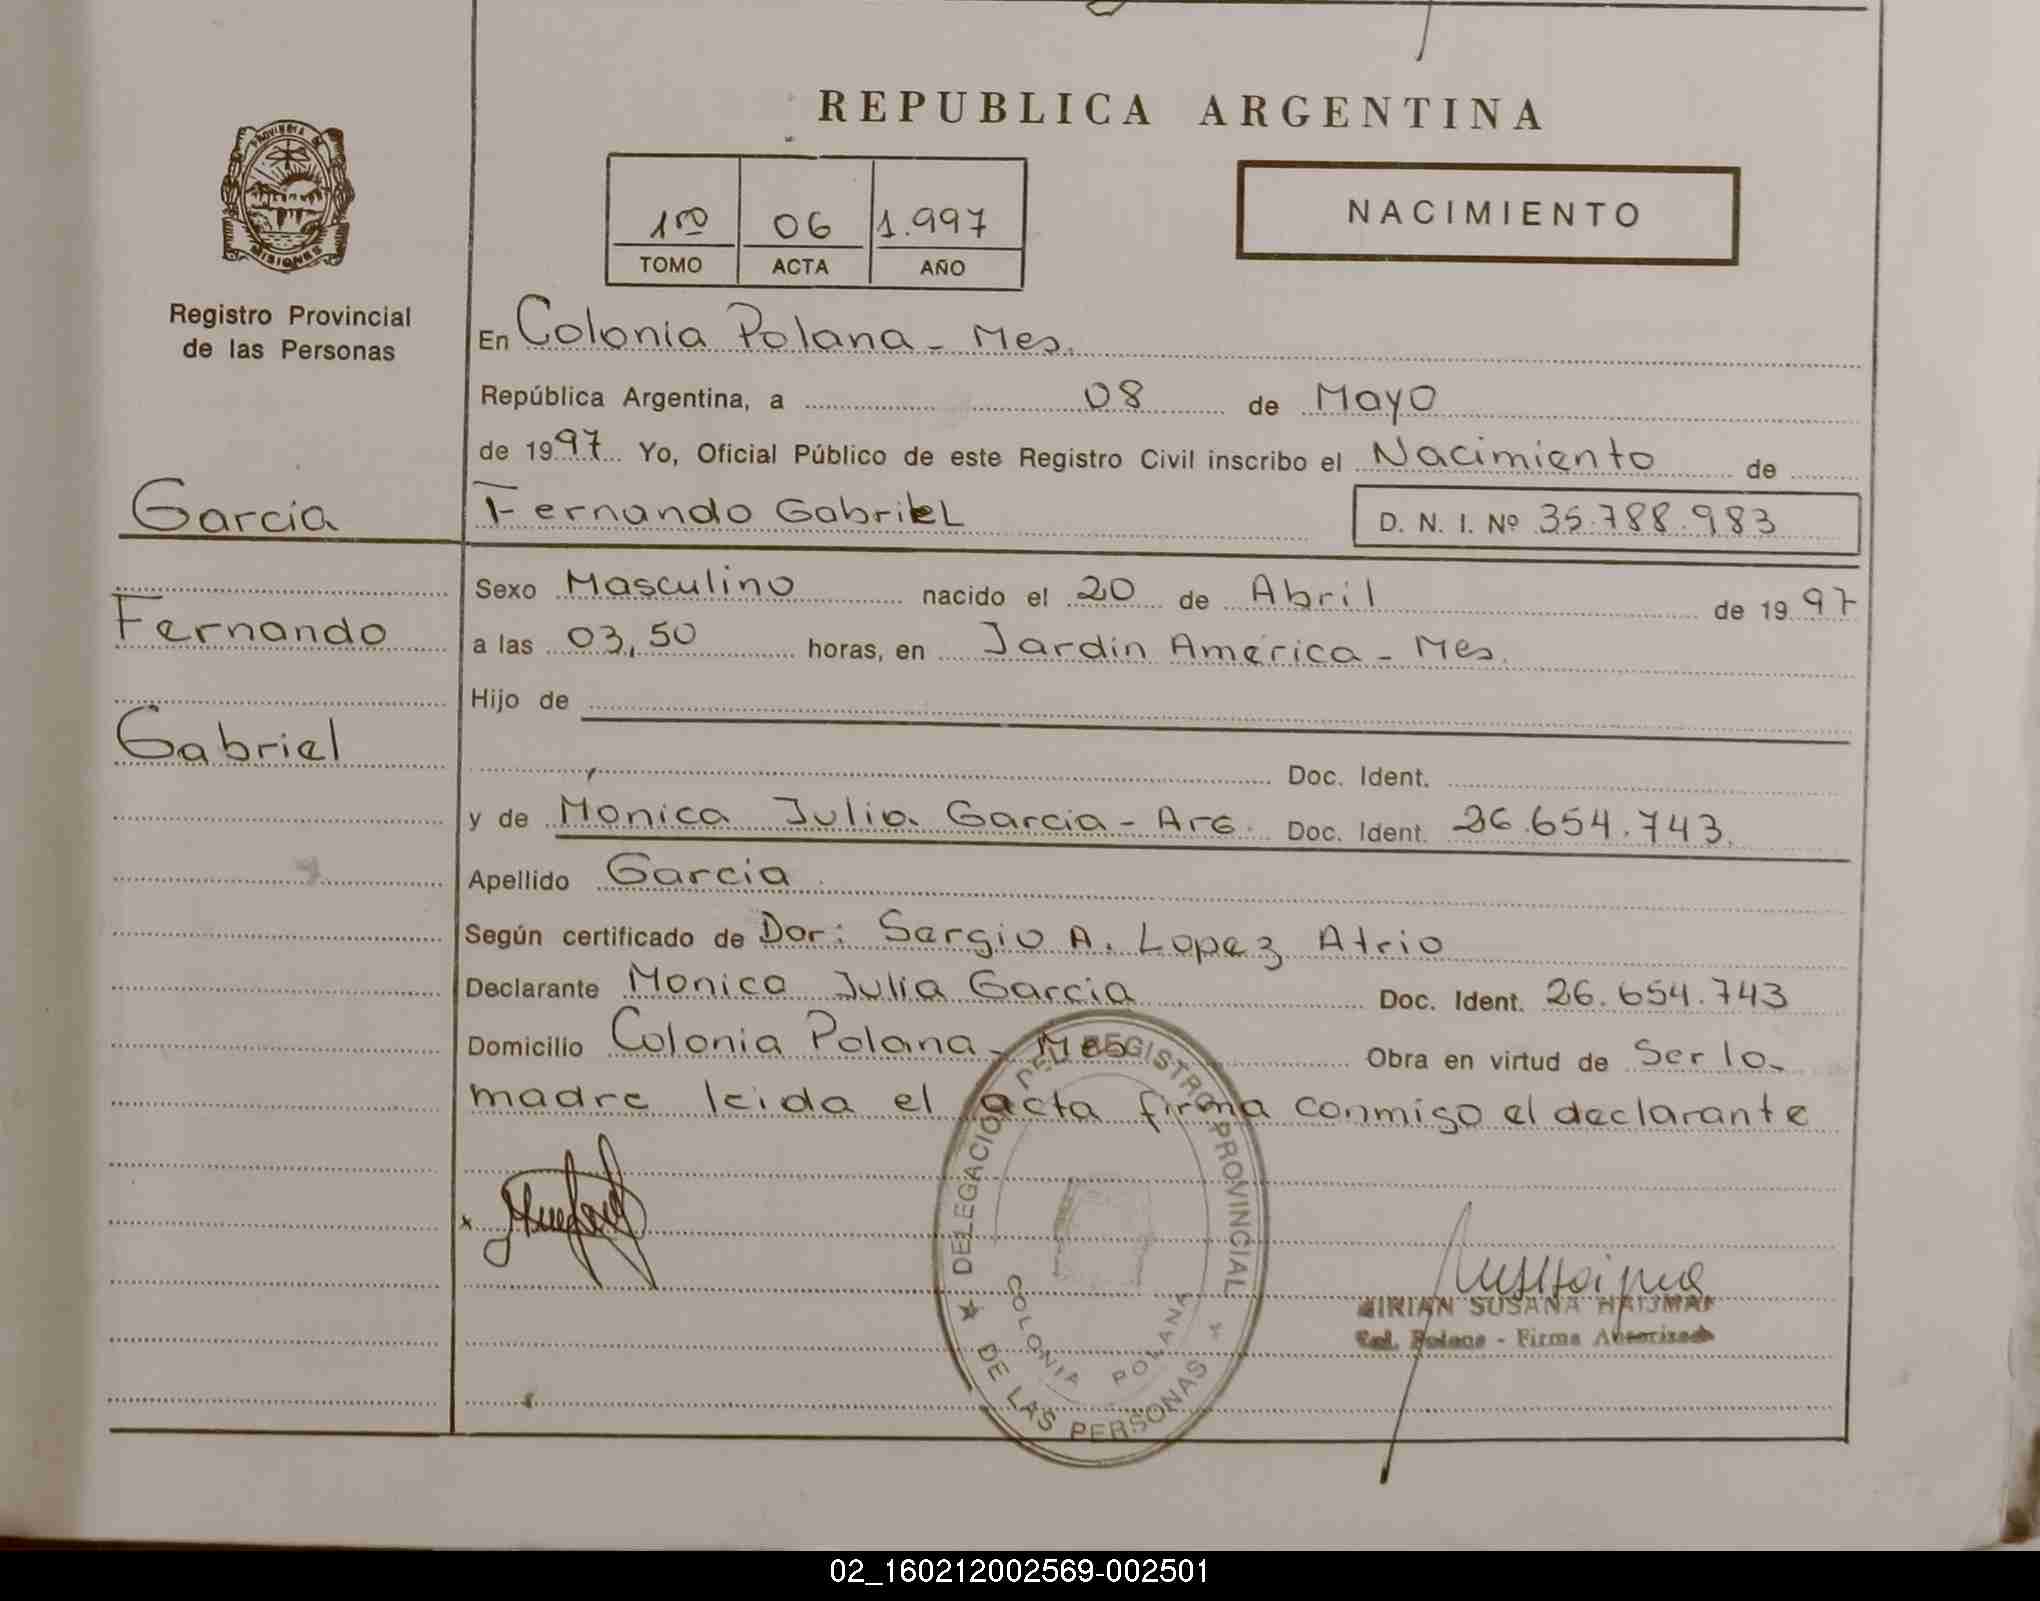 REPUBLICA ARGENTINA
PROVINCIA DE
MISIONES
Registro Provincial
de las Personas
1ro 06 1.997
TOMO ACTA AÑO
NACIMIENTO
En Colonia Polana - Mes.
República Argentina, a 08 de Mayo
de 1997 Yo, Oficial Público de este Registro Civil inscribo el Nacimiento de
Garcia
Fernando Gabriel
D. N. I. Nº 35.788.983
Sexo Masculino nacido el 20 de Abril de 1997
Fernando
a las 03,50 horas, en Jardin América - Mes.
Hijo de
Gabriel
Doc. Ident.
y de Monica Julia Garcia - Arg. Doc. Ident. 26.654.743.
Apellido Garcia
Según certificado de Dor: Sergio A. Lopez Atrio
Declarante Monica Julia Garcia Doc. Ident. 26.654.743
Domicilio Colonia Polana - Mes Obra en virtud de Ser la
madre leida el acta firma conmigo el declarante
DELEGACION DEL REGISTRO PROVINCIAL
DE LAS PERSONAS
COLONIA POLANA
MIRIAN SUSANA
Col. Polana - Firma Autorizada
02_160212002569-002501